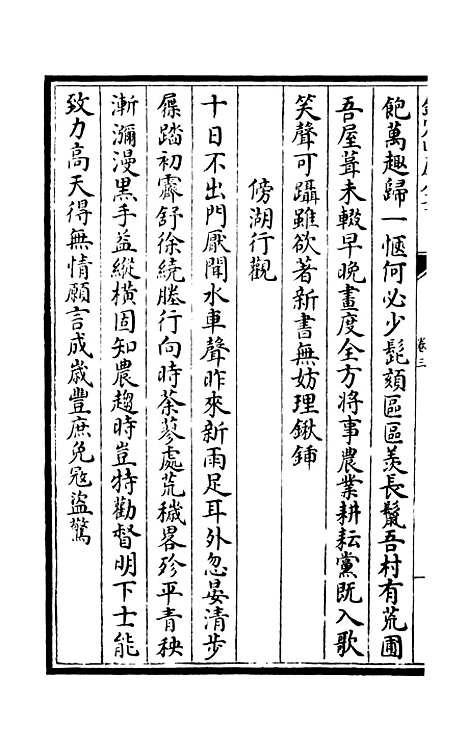 卷三
飽萬趣歸一愜何必少髭頦區區羨長鬣吾村有荒圃
吾屋葺未輟早晚畫度全方將事農業耕耘黨既入歌
笑聲可躡雖欲著新書無妨理鍬鍤
傍湖行觀
十日不出門厭聞水車聲昨來新雨足耳外忽晏清步
屧踏初霽舒徐繞塍行向時荼蓼處荒穢畧殄平青秧
漸瀰漫黒手益縱橫固知農趨時豈特勸督明下士能
致力高天得無情願言成歲豐庶免冦盜驚